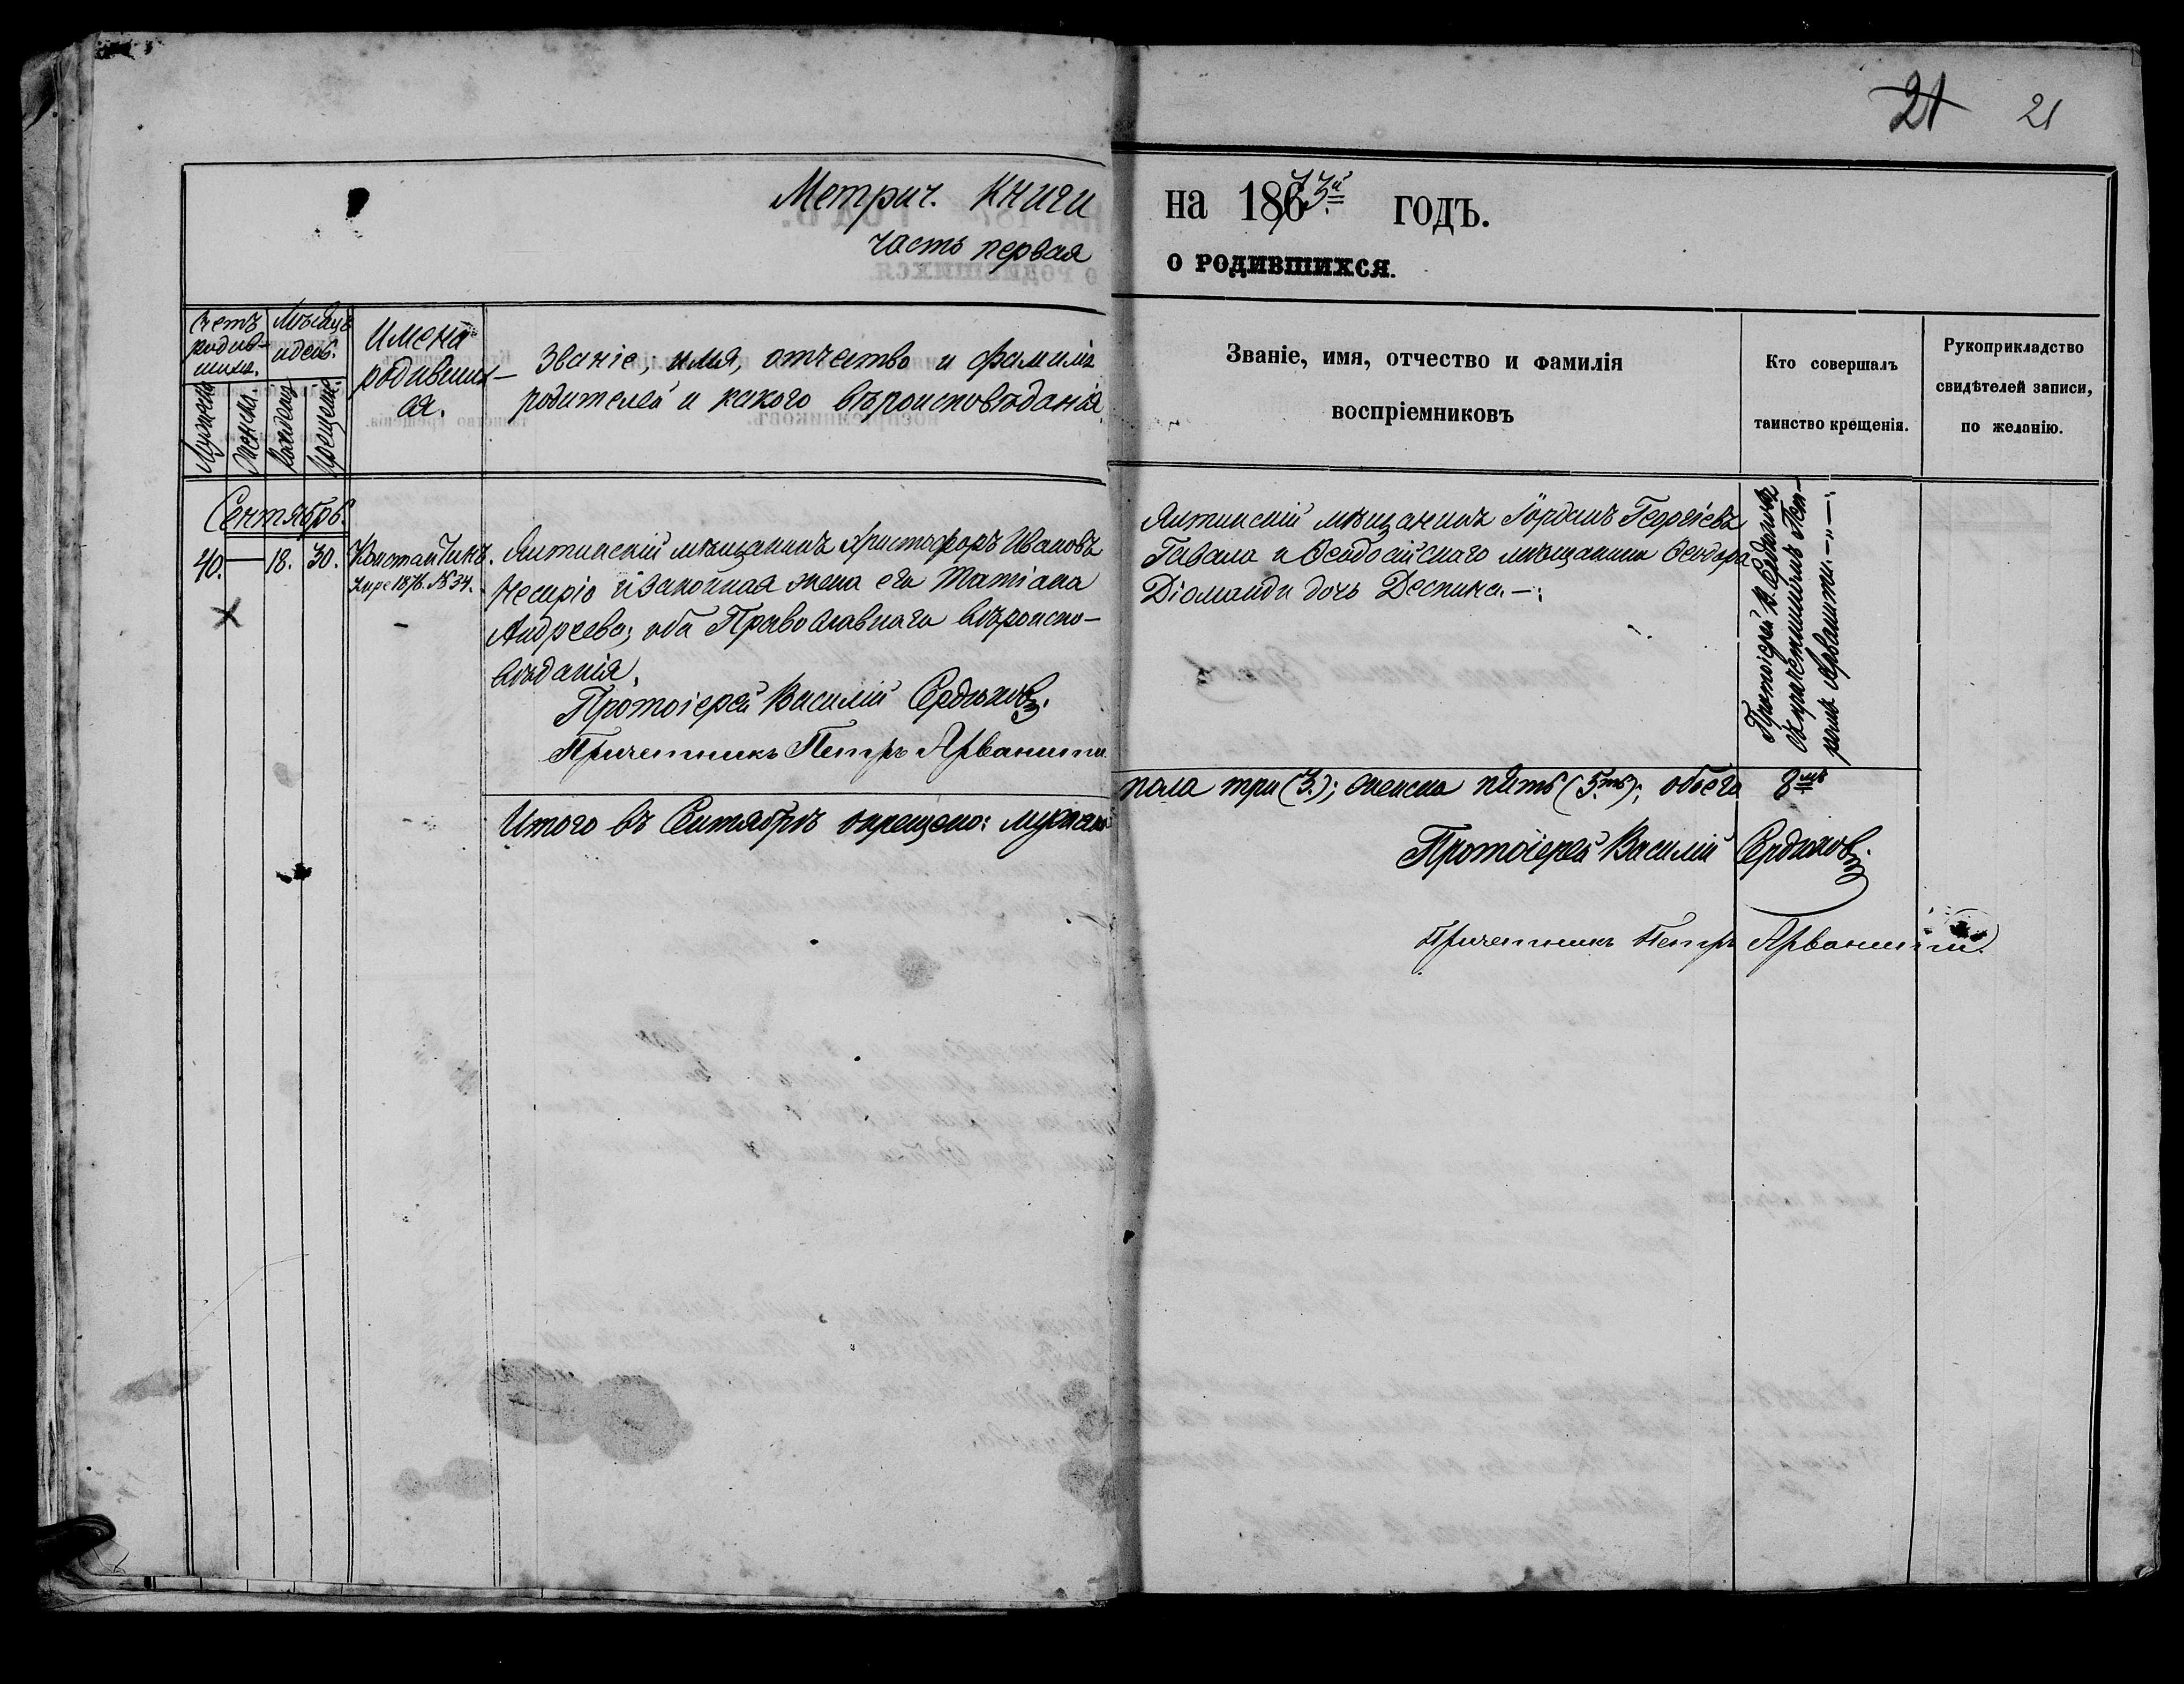 21 21
Метрич. Книги
часть первая
на 1873й годъ.
о родившихся.
Счетъ родив-
шихся.
Мѣсяцъ
и день.
Мужеска
Женска
Рожденія
Крещенія
Имена
родивших-
ся.
Званіе, имя, отчество и фамилія
родителей и какого вѣроисповѣданія
Званіе, имя, отчество и фамилія
воспріемниковъ
Кто совершалъ
таинство крещенія.
Рукоприкладство
свидѣтелей записи,
по желанію.
Сентябрь.
40. — 18. 30.
Константинъ.
№ 34.
Ялтинскій мѣщанинъ Христофоръ Ивановъ
и законная жена его Татіана
Андреева, оба Православнаго вѣроиспо-
вѣданія.
Протоіерей Василій Сердюковъ.
Причетникъ Петръ Арванити
Итого въ Сентябрѣ окрещено: мужеска
Ялтинскій мѣщанинъ Іорданъ Георгіевъ
Гавала и Ѳеодосійскаго мѣщанина Ѳеодора
Діаманди дочь Деспина. —:
Протоіерей В. Сердюковъ
съ причетникомъ Пет-
ромъ Арванити. — „ —:
пола три (3.); женска пять (5.ть); обоего 8мь
Протоіерей Василій Сердюковъ
Причетникъ Петръ Арванити.